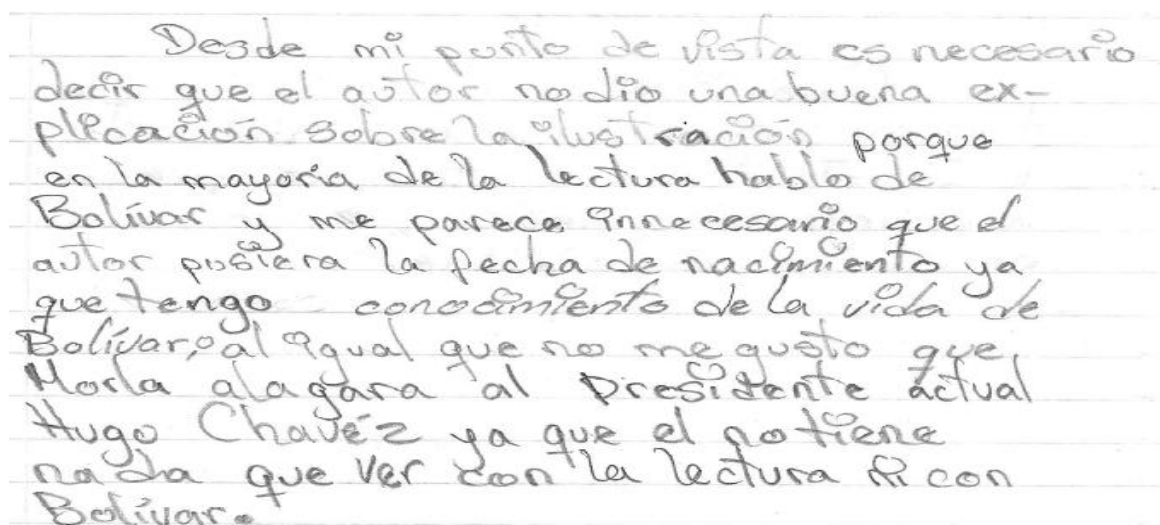 Desde mi punto de vista es necesario
decir que el autor no dio una buena ex-
plicación sobre la ilustración porque
en la mayoria de la lectura hablo de
Bolívar y me parece innecesario que el
autor pusiera la fecha de nacimiento ya
que tengo conocimiento de la vida de
Bolívar, al igual que no me gusto que
Morla alagara al presidente actual
Hugo Chavéz ya que el no tiene
nada que ver con la lectura ni con
Bolívar.